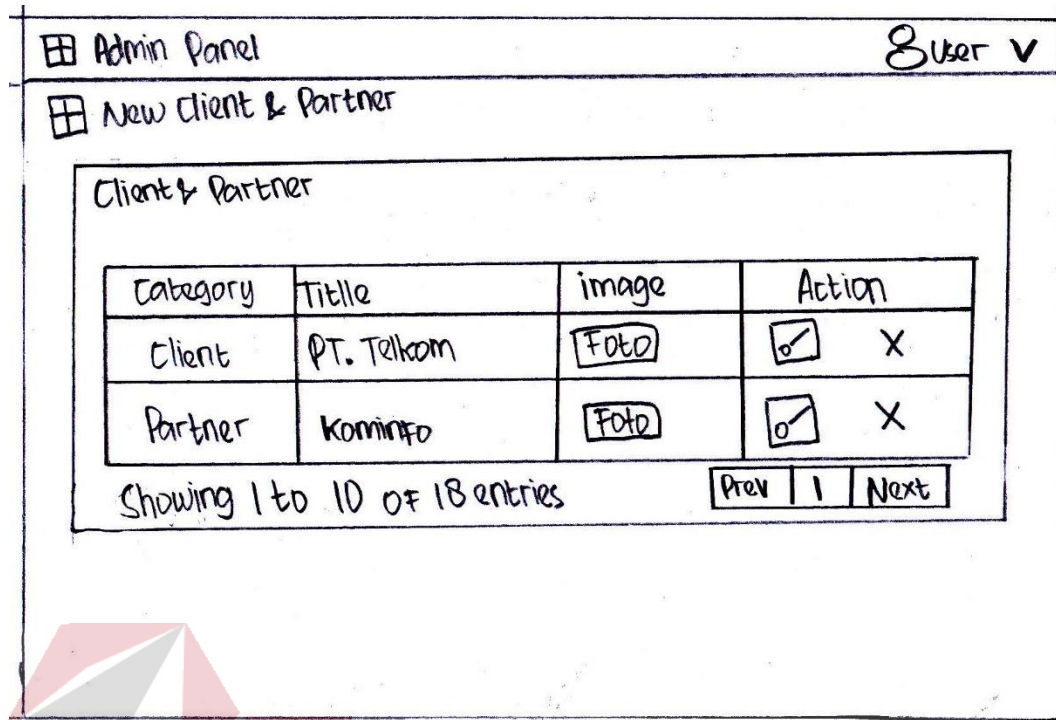 Admin Panel User V
New Client & Partner
Client & Partner
Category Titlle image Action
Client PT. Telkom Foto X
Partner Kominfo Foto X
Showing 1 to 10 of 18 entries Prev 1 Next